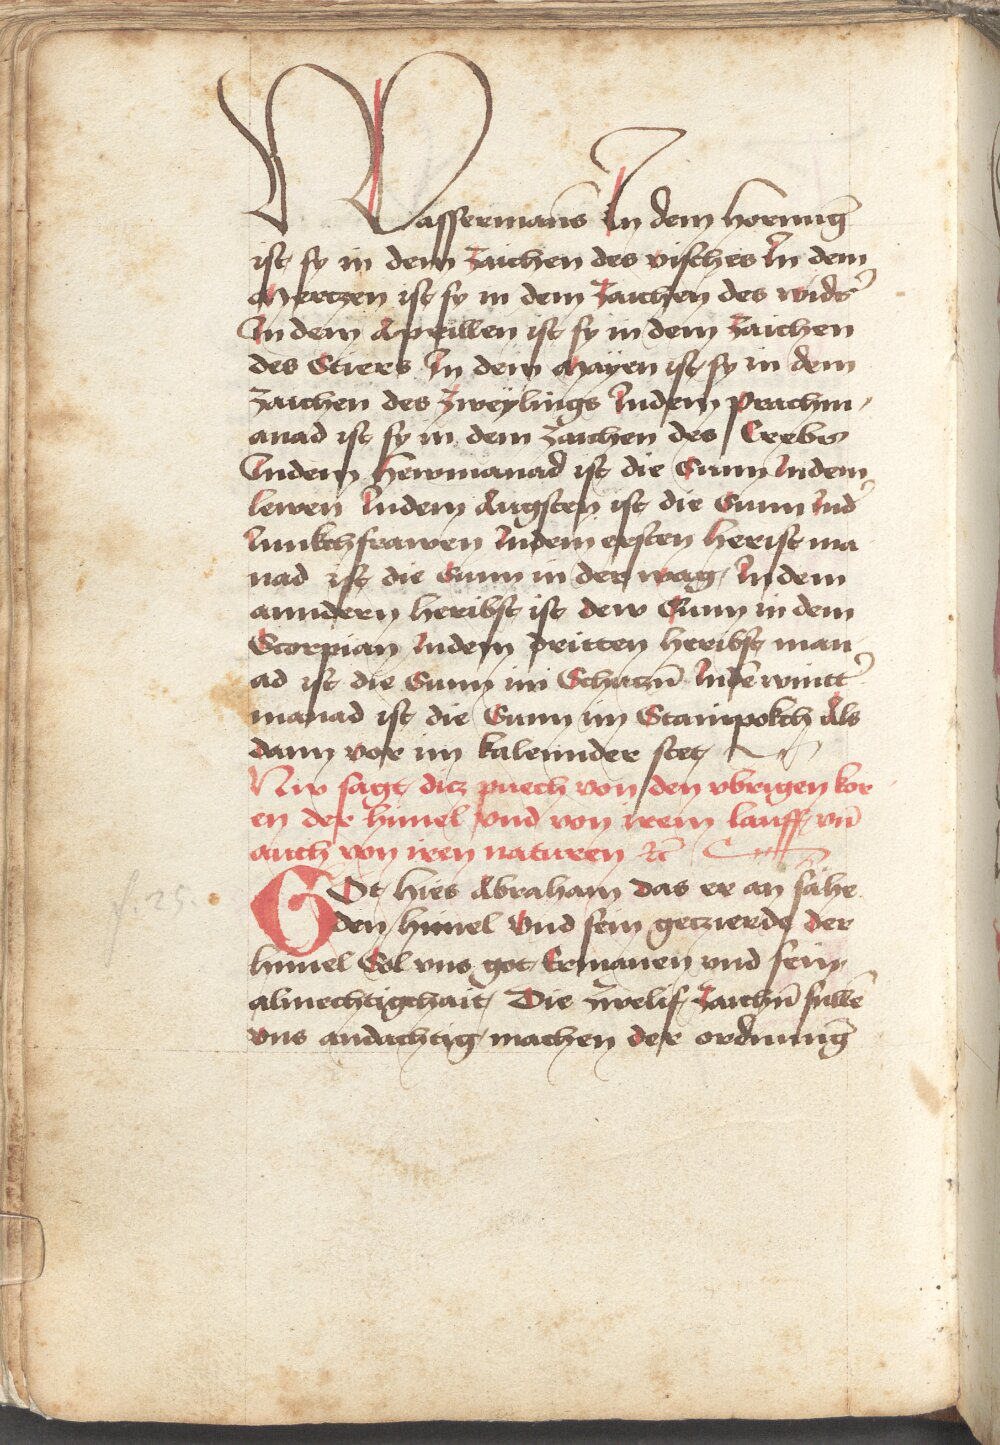 Wassermans̄ In dem hornūg
ist sy in dem Zaichen des visches In dem
Mertzen ist sy in dem Zaichen des wids̓
In dem Aprillen ist sy in dem Zaichen
des Stiers In dem Mayen ist sy in dem
Zaichen des Zweylings Indem Prachm
anad ist sy in dem Zaichen des Crebs
Indem Hewmanad ist die Sunn Indem
lewen Indem Augsten ist die Sunn Ind̓
Iunkchfrawen Indem ersten Herist ma
nad ist die Sunn in der wag Indem
anndern heribst ist dew Sunn in dem
Scorpian Indem dritten heribst man
ad ist die Sunn im Schüczn̄ Indē wintt̓
manad ist die Sunn im Stainpokch Als
dann vor im kalennder stet
Nw sagt ditz puech von den vbrigen kor
en der himel vnd von irem lauff vn̄
auch von iren naturen ꝛc̄
GOt hies Abraham das er an sähe
den himel Vnd sein getzierde der
himel Sol vns got Ermanen vnd sein
almechtigchait Die Zwelif Zaichn̄ sullē
vns andächtig machen der ordnūng
f. 25.